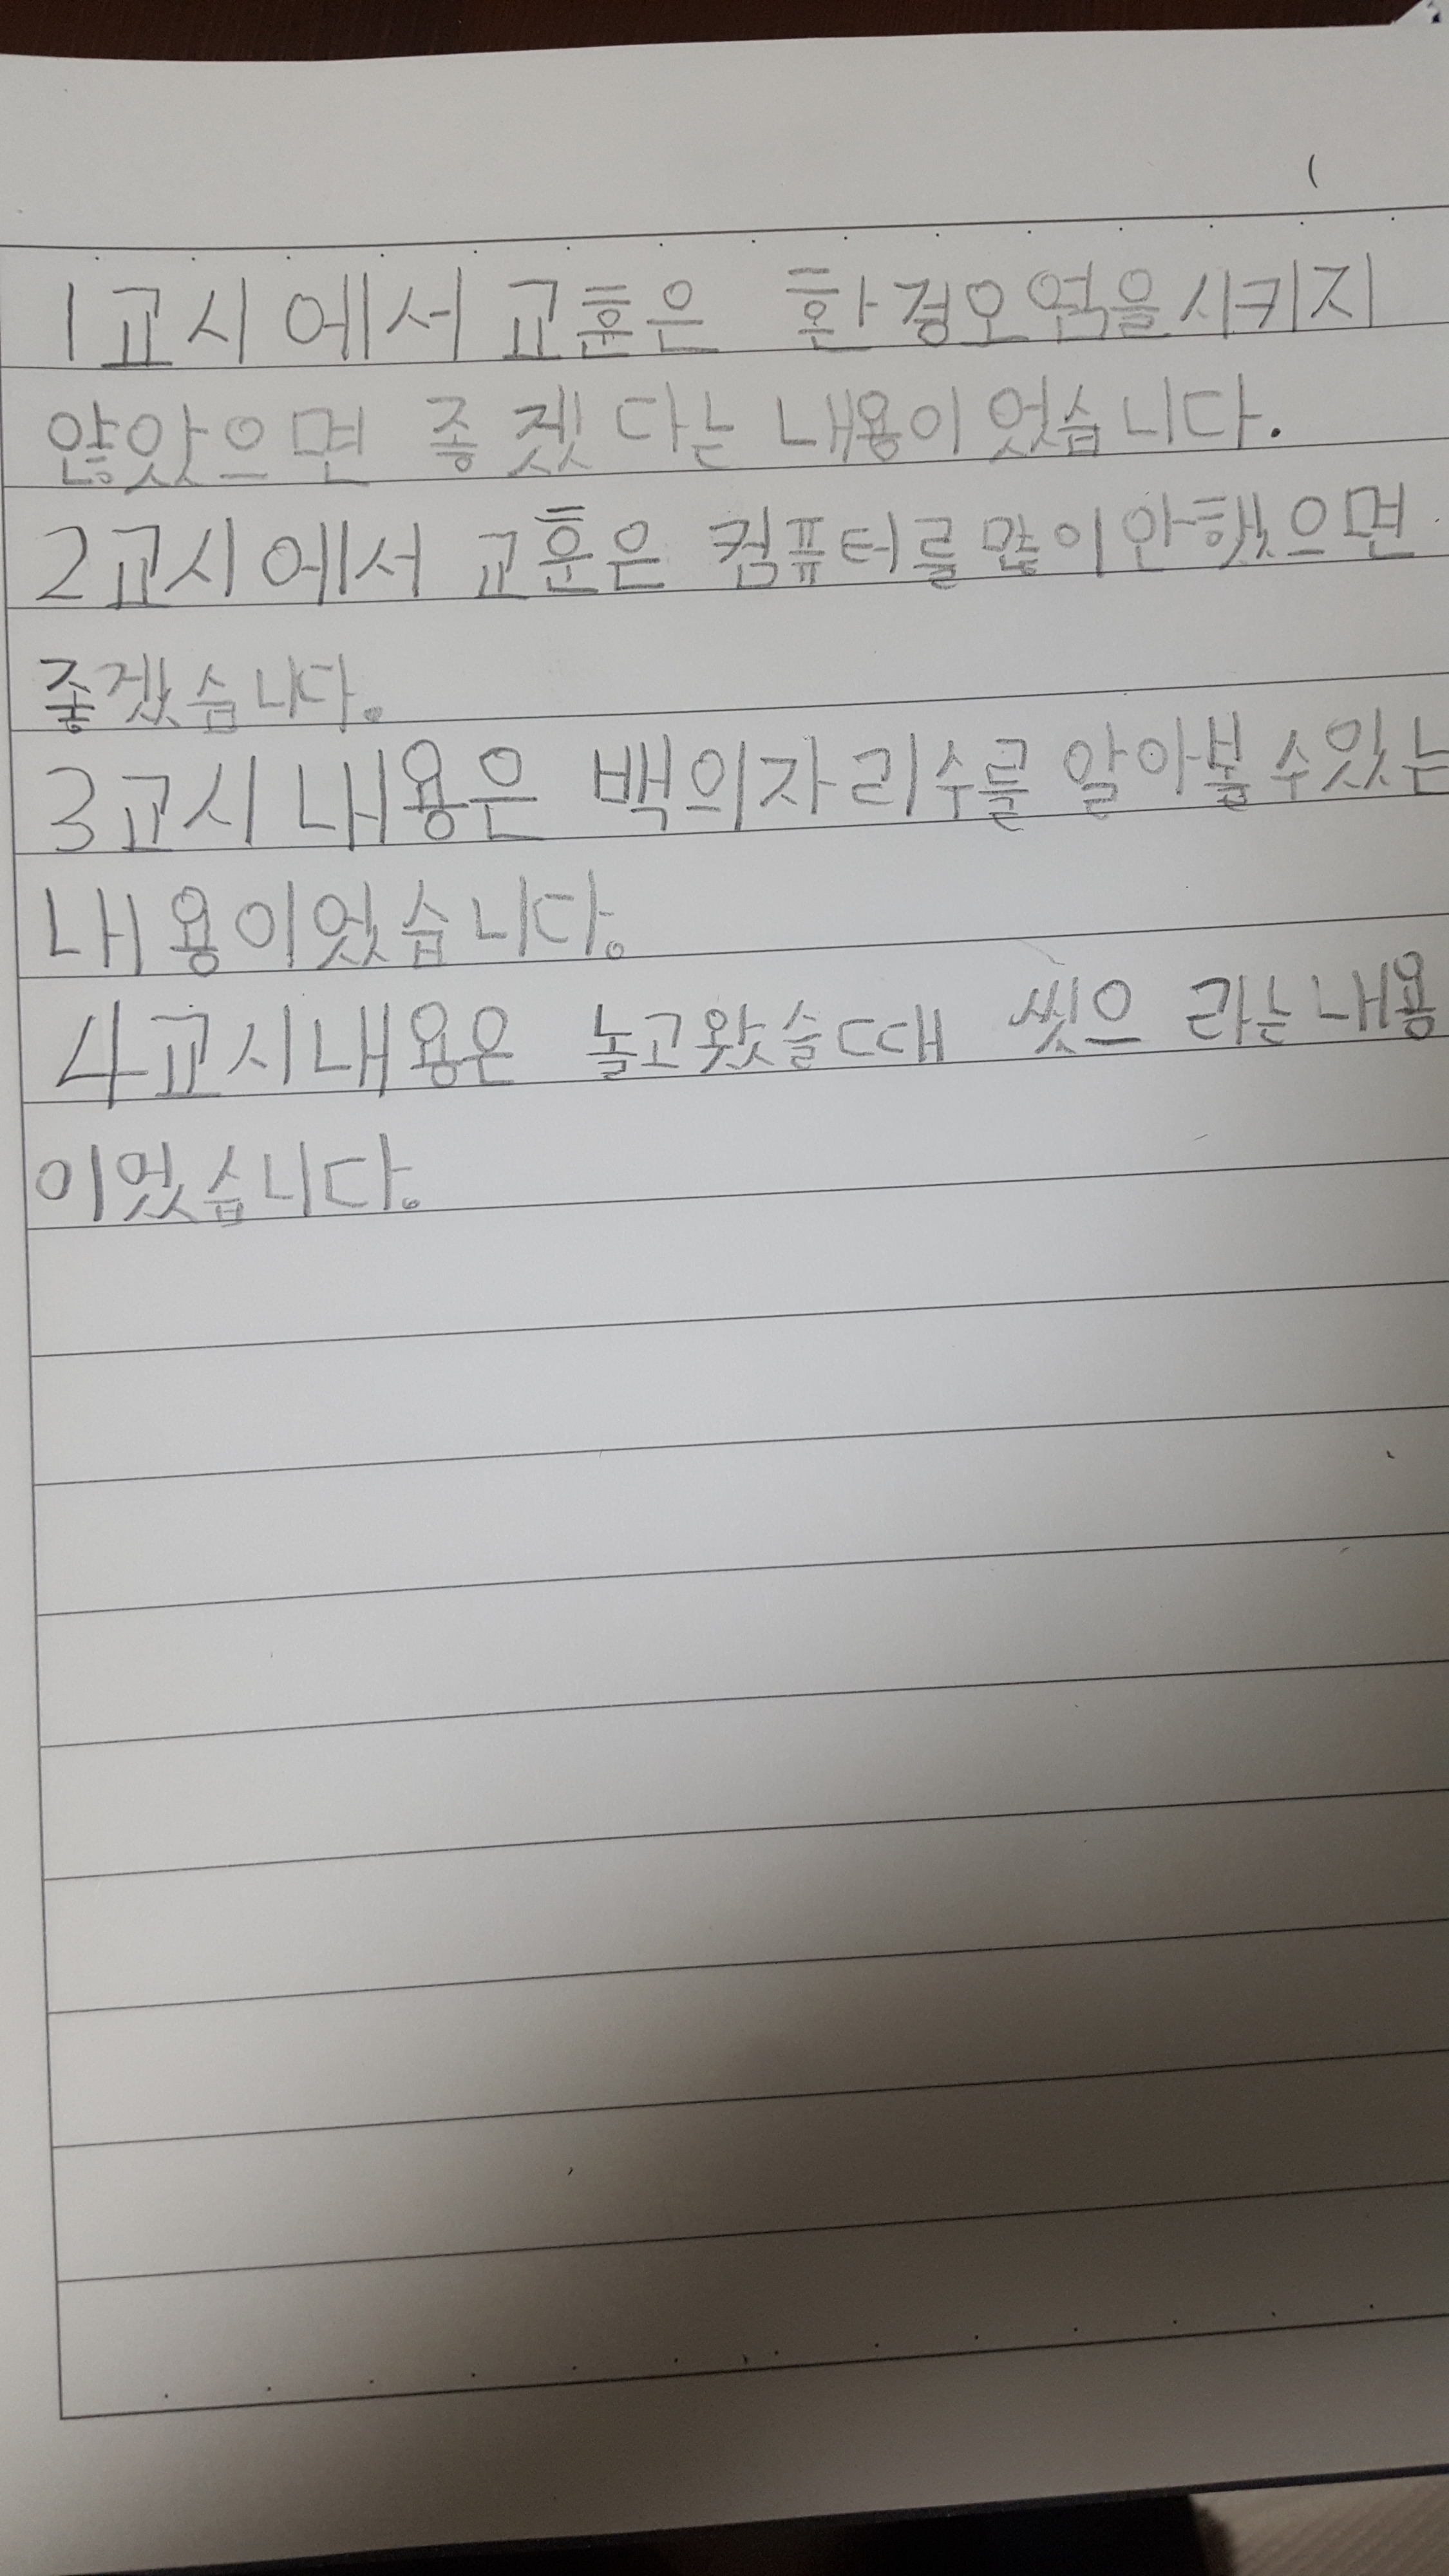 1교시에서 교훈은 환경오염을시키지
않았으면 좋겠다는 내용이었습니다.
2교시에서 교훈은 컴퓨터를많이안했으면
좋겠습니다.
3교시내용은 백의자리수를 알아볼수있는
내용이었습니다.
4교시내용은 놀고왔슬때 씻으 라는내용
이었습니다.